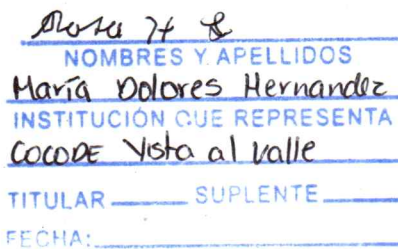 NOMBRES Y APELLIDOS
María Dolores Hernandez
INSTITUCIÓN QUE REPRESENTA
COCODE Vista al Valle
TITULAR SUPLENTE
FECHA: